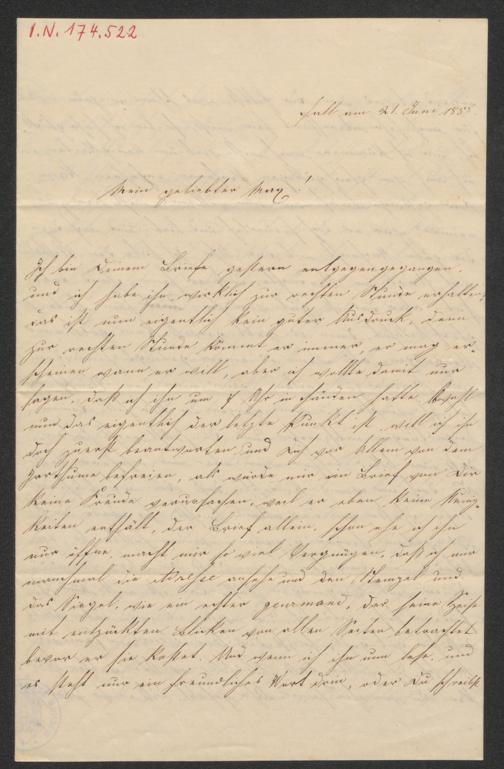 I.N. 174.522
Hall am 21. Juni 1855
Mein geliebter Max!
Ich bin Deinem Briefe gestern entgegengegangen,
und ich habe ihn wirklich zur rechten Stunde erhalten,
das ist nun eigentlich kein guter Ausdruck, denn
zur rechten Stunde kommt er immer, er mag er-
scheinen wann er will, aber ich wollte damit nur
sagen, daß ich ihn um 7 Uhr in Händen hatte. Obwohl
nun das eigentlich der letzte Punkt ist, will ich ihn
doch zuerst beantworten und Dich vor Allem von dem
Irrthume befreien, als würde mir ein Brief von Dir
keine Freude verursachen, weil er eben keine Neuig-
keiten enthält, der Brief allein, schon ehe ich ihn
nur öffne, macht mir so viel Vergnügen, daß ich mir
manchmal die Adresse ansehe und den Stempel und
das Siegel, wie ein echter gourmand, der seine Speise
mit entzückten Blicken von allen Seiten betrachtet
bevor er sie kostet. Und wenn ich ihn nun lese, und
es steht nur ein freundliches Wort drin, oder Du schreibst